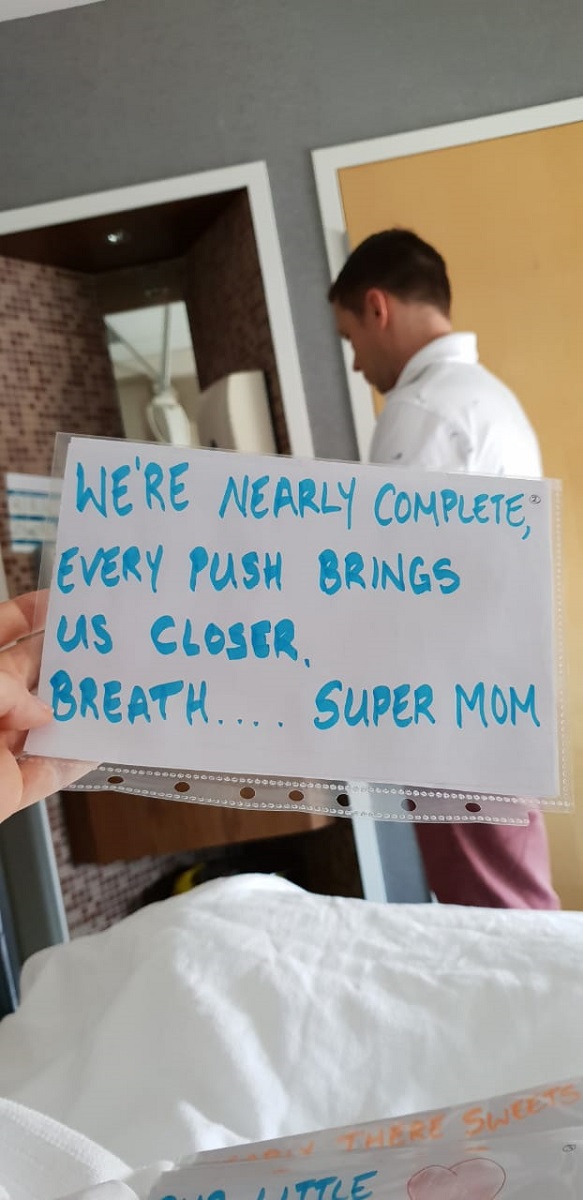 WE'RE NEARLY COMPLETE,
EVERY PUSH BRINGS
US CLOSER.
BREATH.... SUPER MOM
THERE SWEETS
LITTLE